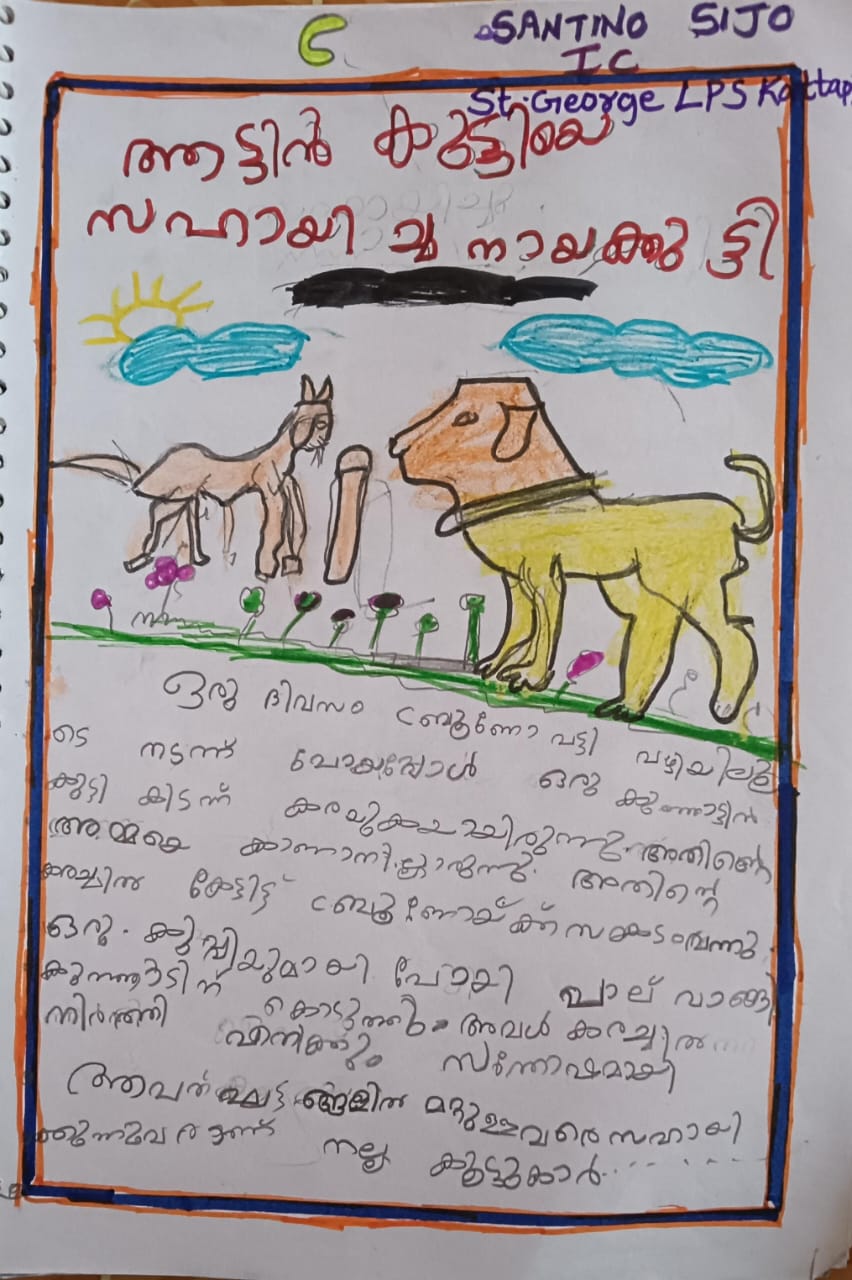 SANTINO SIJO
I C
St. George LPS Kattap
ആട്ടിൻ കുട്ടിയെ
സഹായി ച്ച നായക്കു ട്ടി
ഒരു ദിവസം ബ്രൂണോ പട്ടി വഴിയിലൂ
ടെ നടന്ന് പോയപ്പോൾ ഒരു കുഞ്ഞാട്ടിൻ
കുട്ടി കിടന്ന് കരയുകയായിരുന്നു. അതിന്റെ
അമ്മയെ കാണാനില്ലാരുന്നു. അതിന്റെ
കരച്ചിൽ കേട്ടിട്ട് ബ്രൂണോയ്ക്ക് സങ്കടംവന്നു.
ഒരു. കുപ്പിയുമായി പോയി പാല് വാങ്ങി
കുഞ്ഞാടിന് കൊടുത്തു. അവൾ കരച്ചിൽ
നിർത്തി എനിക്കും സന്തോഷമായി
ആപത് ഘട്ട ങ്ങളിൽ മറ്റുള്ളവരെ സഹായി
ക്കുന്നവരാണ് നല്ല കൂട്ടുകാർ.......